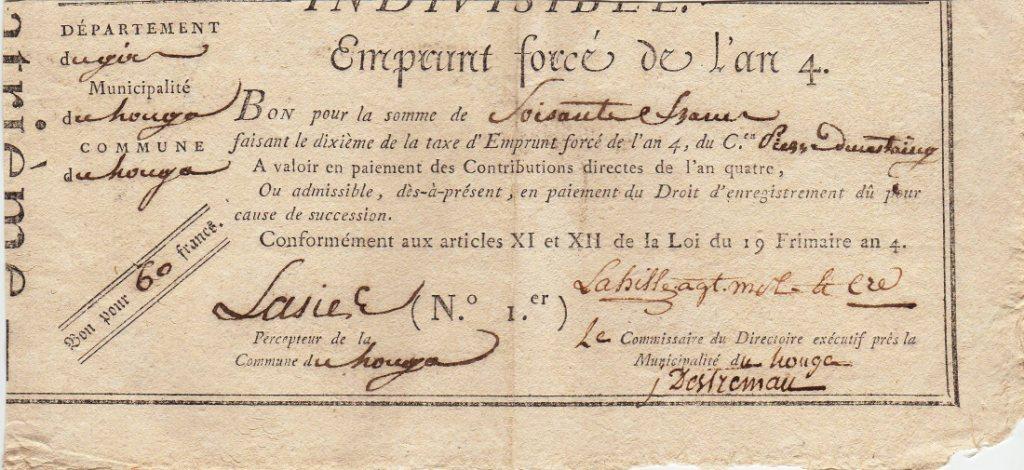 INDIVISIBLE.
DÉPARTEMENT
du gers
Municipalité
du houga
COMMUNE
du houga
Emprunt forcé de l'an 4.
BON pour la somme de Soisante francs
faisant le dixième de la taxe d'Emprunt forcé de l'an 4, du C.en Pierre
A valoir en paiement des Contributions directes de l'an quatre,
Ou admissible, dès-à-présent, en paiement du Droit d'enregistrement dû pour
cause de succession.
Conformément aux articles XI et XII de la Loi du 19 Frimaire an 4.
Bon pour 60 francs.
(N.o 1.er)
Percepteur de la
Commune du houga
Lahille agt. mpl.
Le Commissaire du Directoire exécutif près la
Municipalité du houga
Destremau
trième